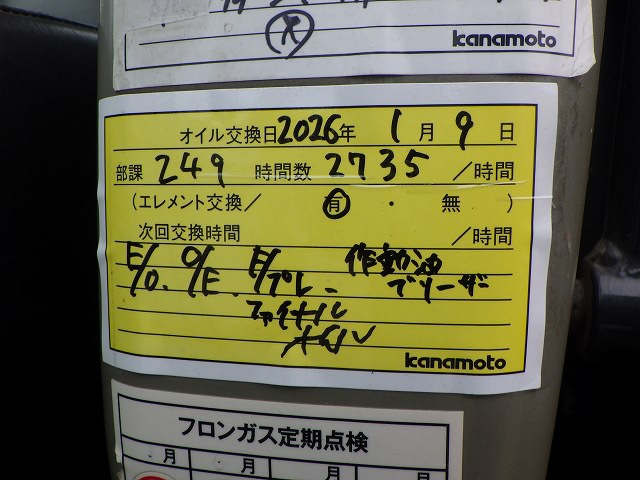 kanamoto
オイル交換日2026年 1月 9日
部課 249 時間数 2735 /時間
(エレメント交換/ 有 ・ 無 )
次回交換時間 /時間
E/O. O/E. E/プレ- 作動油ブリーザー
ファイナル
オイル
kanamoto
フロンガス定期点検
月 月 月 月